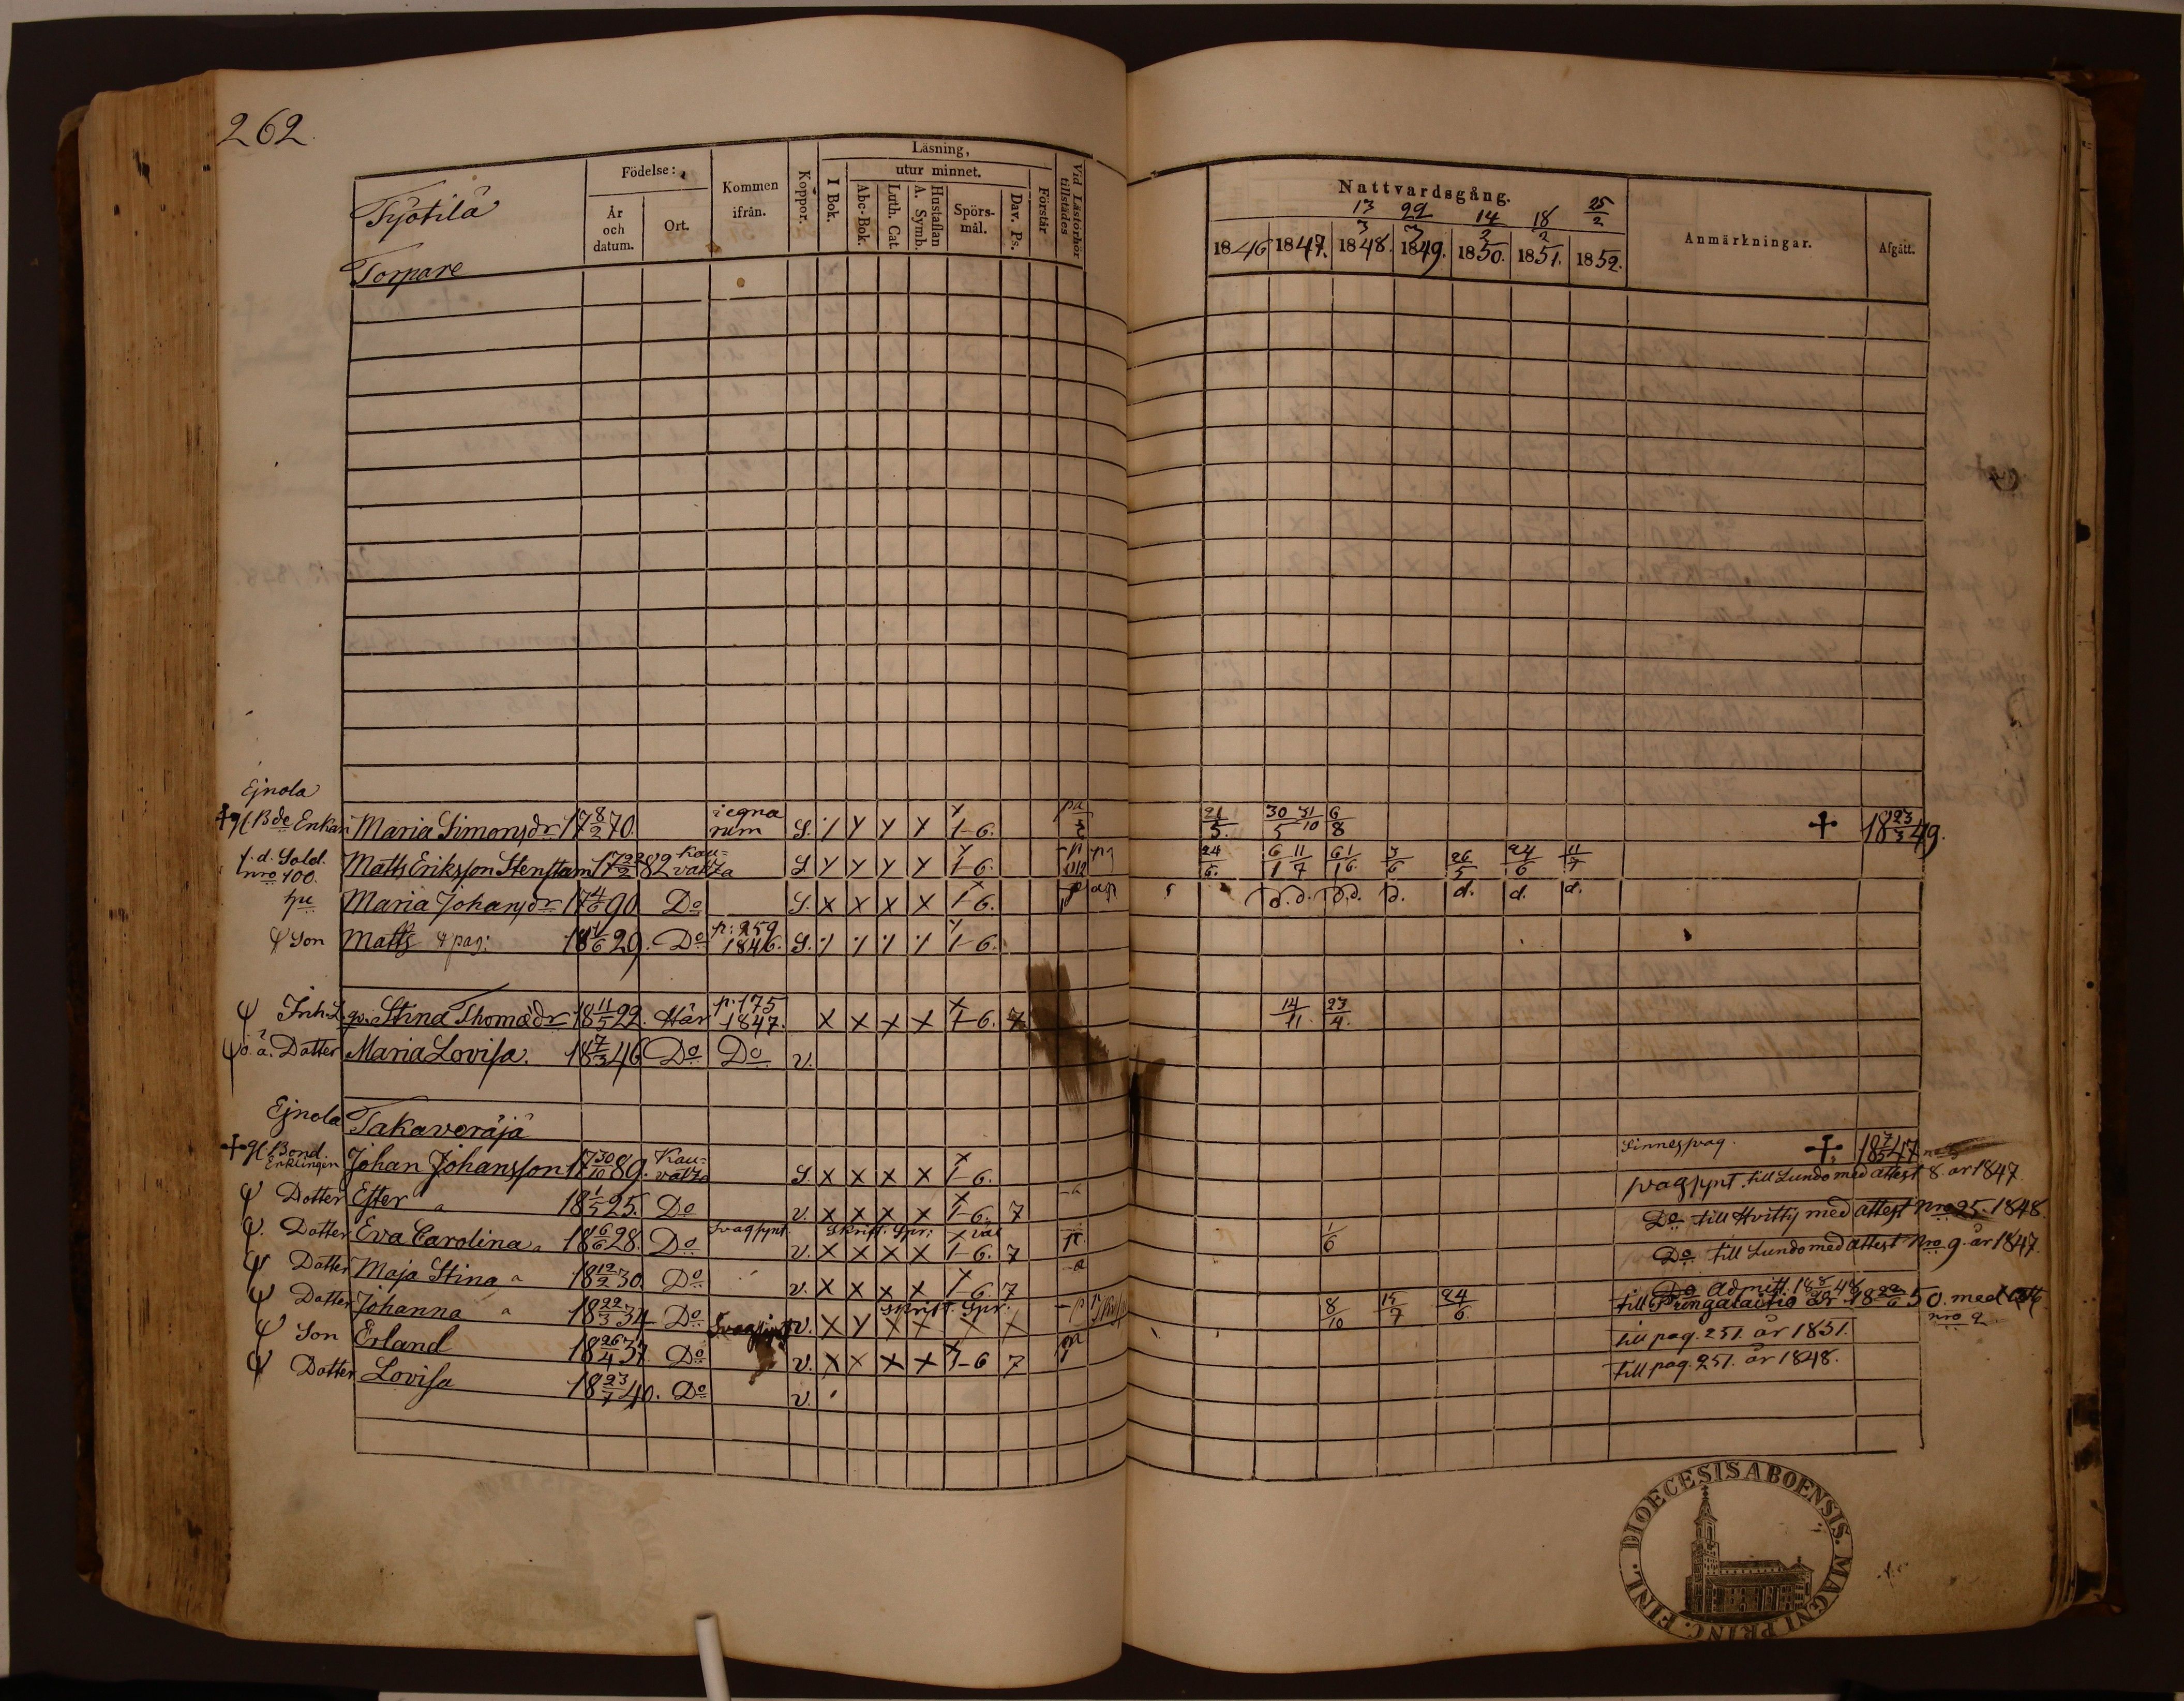 262.
Tyotilä
Torpare
Födelse:
År och datum.
Ort.
Kommen ifrån.
Koppor.
Läsning,
I Bok.
utur minnet.
Abc-Bok.
Luth. Cat.
Hustaflan A. Symb.
Spörsmål.
Dav. Ps.
Förstår
Vid Läsförhör tillstädes
Nattvardsgång.
13/3 29/3 14/2 18/2 25/2
1846 1847. 1848. 1849. 1850. 1851. 1852.
Anmärkningar.
Afgått.
Ejnola
Bde Enkan Maria Simonsdr 17 8/2 70. i egna rum S. 1-6. 21/5. 30/5 31/10 6/8 18 23/3 49.
f. d. Sold. nro 100. Matts Eriksson Stenstam 17 22/2 82 Kauvatza S 1-6. 24/6. 6/1 11/7 61/16 3/6 26/5 24/6 11/7
hu Maria Johansdr 17 4/6 90 Do S. x x x x 1-6. d. d. d. d. d. d. d. d.
Son Matts 18 1/6 29. Do p: 259 1846. S. 1-6.
Inh. Stina Thomædr 18 11/5 22. Här p. 175 1847. x x x x 1-6. 7 14/11. 23/4.
o. ä. Dotter Maria Lovisa. 18 7/3 46 Do Do v.
Ejnola Takaveräjä
Bond. Enklingen Johan Johansson 17 30/10 89. Kauvatza S. x x x x 1-6. Sinnessvag. 18 7/5 47
Dotter Ester 18 1/5 25. Do v. x x x x 1-6. 7 svagsynt. till Lundo med attest 8 år 1847.
Dotter Eva Carolina 18 6/6 28. Do Svagsynt. Skrift. Spr: väl v. x x x x 1-6. 7 1/6 Do till Hvittis med attest Nro 25. 1848.
Dotter Maja Stina 18 12/2 30 Do v. x x x x 1-6 7 Do till Lundo med attest Nro 9. år 1847.
Dotter Johanna 18 22/3 34 Do Skrift. Spr. v. x x x x x x 8/10 15/7 24/6 Do Admitt. 18 8/10 48
till Pungalaitio år 18 22/6 50. med att. nro 2
Son Erland 18 26/4 37. Do Svagsynt v. x x x x 1-6 7 till pag. 251. år 1851.
Dotter Lovisa 18 23/7 40. Do v. till pag. 251. år 1848.
DIOECESIS ABOENSIS. MAGNI PRINC. FINL.